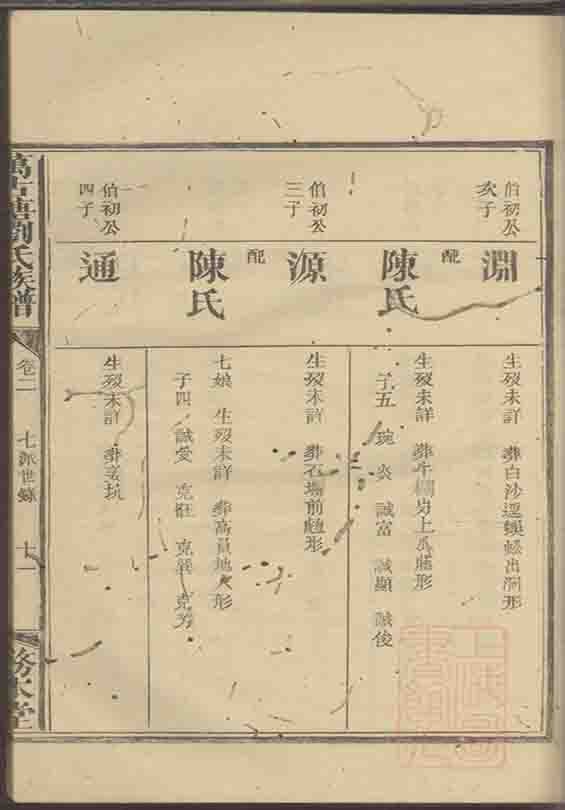 伯初公
次子
淵
生歿未詳 葬白沙逕蜈蚣出洞形
配
陳氏
生歿未詳 葬牛欄
上
形
子五 琬 炎 誠富 誠顯 誠俊
伯初公
三子
源
生歿未詳 葬石塲前
形
配
陳氏
七娘 生歿未詳 葬高
地人形
子四 誠愛 克
克
克芳
伯初公
四子
通
生歿未詳 葬
坑
萬石塘劉氏族譜
卷二 七派世錄 十一
務本堂